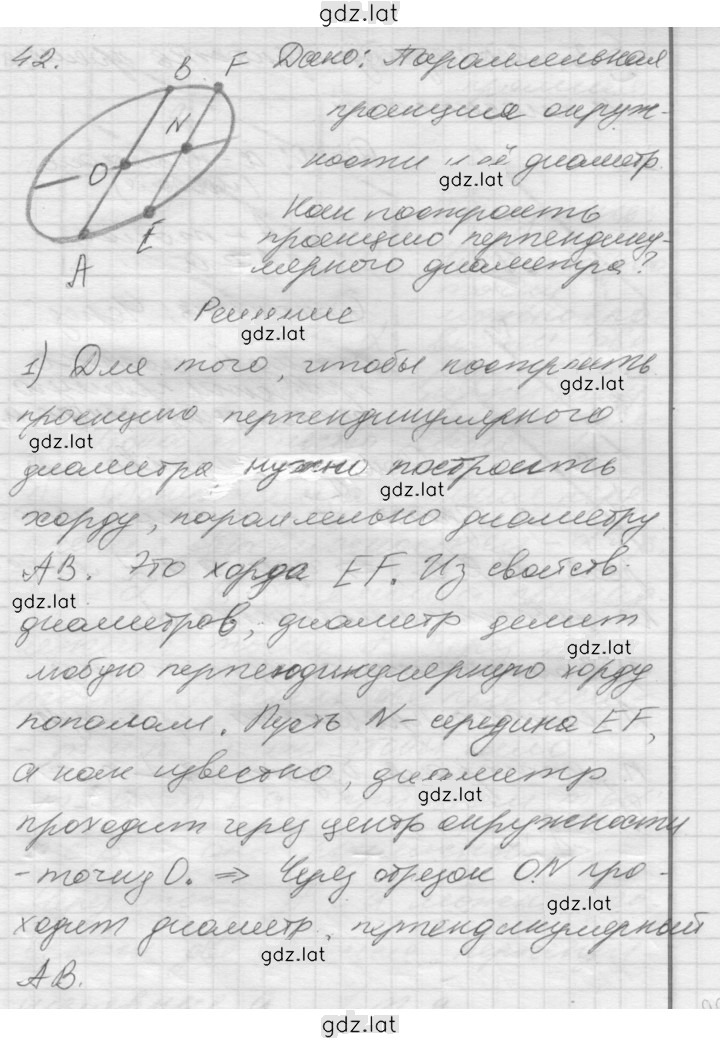 gdz.lat
42.
B F Дано: Параллельная
проекция окруж-
N
ности и её диаметр.
O
gdz.lat
Как построить
E
проекцию перпендику-
A
лярного диаметра?
Решение
gdz.lat
1) Для того, чтобы построить
gdz.lat
проекцию перпендикулярного
gdz.lat
диаметра нужно построить
gdz.lat
хорду, параллельно диаметру
AB. Это хорда EF. Из свойств
gdz.lat
диаметров, диаметр делит
gdz.lat
любую перпендикулярную хорду
пополам. Пусть N - середина EF,
а как известно, диаметр
gdz.lat
проходит через центр окружности
- точку O. ⇒ Через отрезок ON про-
gdz.lat
ходит диаметр, перпендикулярный
gdz.lat
AB.
gdz.lat